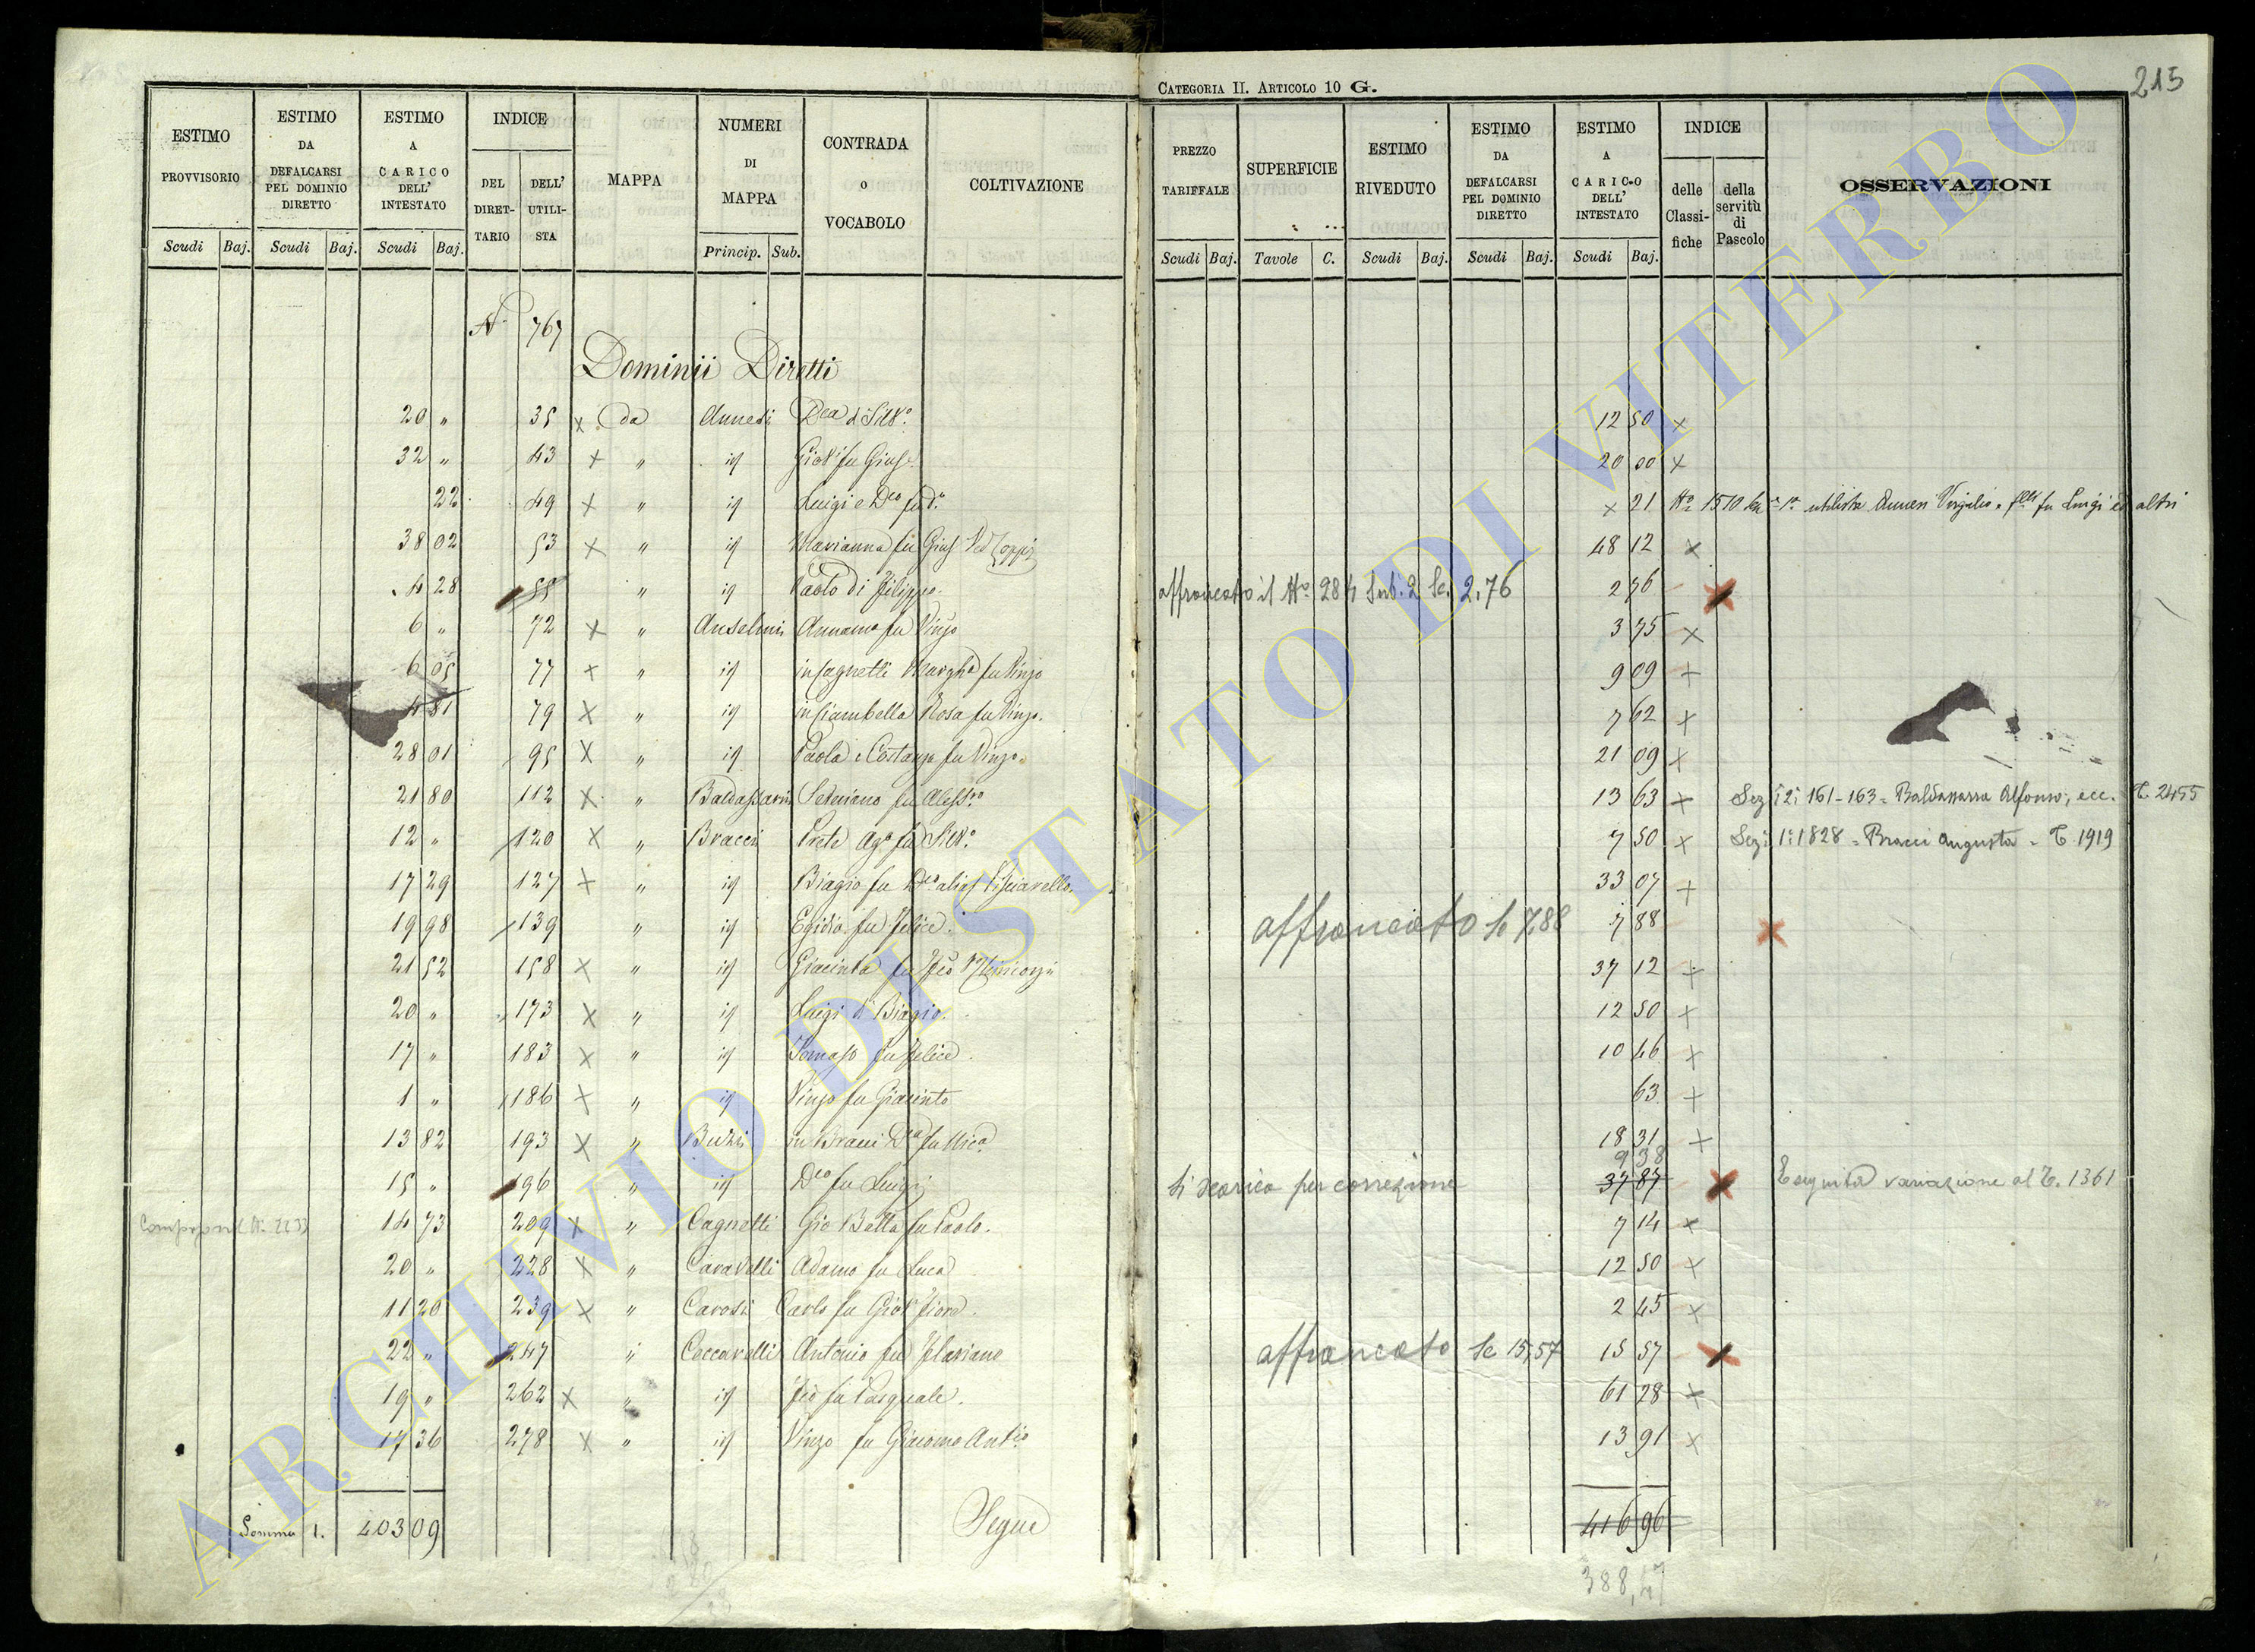 CATEGORIA II. ARTICOLO 10 G.
215
ESTIMO PROVVISORIO
ESTIMO DA DEFALCARSI PEL DOMINIO DIRETTO
ESTIMO A CARICO DELL' INTESTATO
INDICE
DEL DIRETTARIO
DELL' UTILISTA
MAPPA
NUMERI DI MAPPA
CONTRADA o VOCABOLO
COLTIVAZIONE
PREZZO TARIFFALE
SUPERFICIE
ESTIMO RIVEDUTO
ESTIMO DA DEFALCARSI PEL DOMINIO DIRETTO
ESTIMO A CARICO DELL' INTESTATO
INDICE
delle Classifiche
della servitù di Pascolo
OSSERVAZIONI
Scudi Baj. Scudi Baj. Scudi Baj. Princip. Sub.
Scudi Baj. Tavole C. Scudi Baj. Scudi Baj. Scudi Baj.
N. 767
Dominii Diretti
20 " 35 x da Annesi 12 50 x
32 " 43 x " id Giov. fu Gius. 20 00 x
22 49 x " id Luigi e Dco fu x 21 No 1510 utilista Annesi Virgilio fu Luigi ed altri
38 02 53 x " id Marianna fu Gius 48 12 x
4 28 55 " id Paolo di Filippo affrancato il No 284 Sub. 2 Sc. 2.76 2 76 x
6 " 72 x " Anselmi fu Vinzo 3 75 x
6 05 77 x " id in Cagnetti Margha fu Vinzo 9 09 x
4 81 79 x " id in Ciambella Rosa fu Vinzo. 7 62 x
28 01 95 x " id Paola e Costanza fu Vinzo 21 09 x
21 80 112 x " Baldassarri fu Aless. 13 63 x Sez. 2ª 161-163 = Baldassarra Alfonso, ecc. T. 2455
12 " 120 x " Bracci Prete 7 50 x Sez. 1ª 1828 = Bracci Augusta = T. 1919
17 29 127 x " id Biagio fu Dco alias 33 07 x
19 98 139 " id Egidio fu Felice. affrancato Sc 7.88 7 88 x
21 52 158 x " id Giacinta fu 37 12 x
20 " 173 x " id Luigi di Biagio. 12 50 x
17 " 183 x " id Tomaso fu Felice 10 46 x
1 " 186 x " id Vinzo fu Giacinto 63 x
13 82 193 x " Buzzi in Bracci Dca fu 18 31 x
9 38
15 " 196 " id Dco fu Luigi Si scarica per correzione 37 87 x Eseguita variazione al T. 1361
14 73 209 x " Cagnetti Gio Batta fu Paolo. 7 14 x
20 " 228 x " Caravelli Adamo fu Luca 12 50 x
11 20 239 x " Carosi Carlo fu 2 45 x
22 " 247 " Ceccarelli Antonio fu Flaviano affrancato Sc 15,57 15 57 x
19 " 262 x " id fu Pasquale. 61 28 x
17 36 278 x " id Vinzo fu Giacomo Antio 13 91 x
Somma 1. 403 09 Segue 416 96
388,47
ARCHIVIO DI STATO DI VITERBO